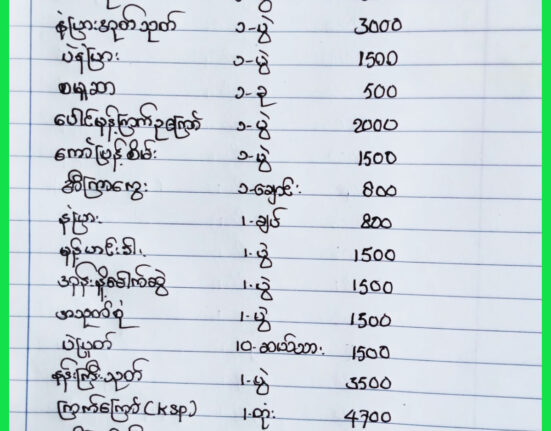 နံပြားအုတ်သုတ် ၁-ပွဲ 3000
ပဲနံပြား ၁-ပွဲ 1500
စမူဆာ ၁-ခု 500
ပေါင်မုန့်ကြက်ဥကြော် ၁-ပွဲ 2000
ကော်ပြန့်စိမ်း ၁-ပွဲ 1500
အီကြာကွေး ၁-ချောင်း 800
နံပြား 1-ချပ် 800
မုန့်ဟင်းခါး 1-ပွဲ 1500
အုန်းနို့ခေါက်ဆွဲ 1-ပွဲ 1500
အသုတ်စုံ 1-ပွဲ 1500
ပဲပြုတ် 10-ဆယ်သား 1500
နန်းကြီးသုတ် 1-ပွဲ 3500
ကြက်ကြော် (KSP) 1-တုံး 4700